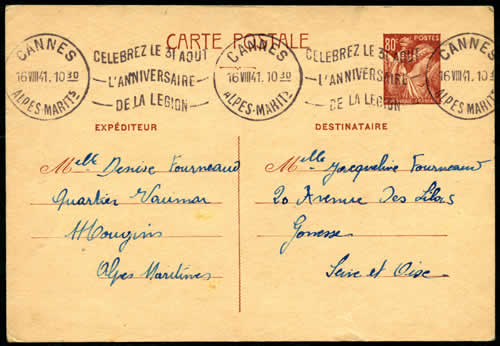 CARTE POSTALE
80c POSTES
CANNES
16 VIII 41. 10 30
ALPES-MARITS
CELEBREZ LE 31 AOUT
L'ANNIVERSAIRE
DE LA LEGION
CANNES
16 VIII 41. 10 30
ALPES-MARITS
CELEBREZ LE 31 AOUT
L'ANNIVERSAIRE
DE LA LEGION
CANNES
16 VIII 41. 10 30
ALPES-MARITS
EXPÉDITEUR
Melle Denise Fourneaud
Quartier Vaumar
Mougins
Alpes Maritimes
DESTINATAIRE
Melle Jacqueline Fourneaud
20 Avenue Des Lilas
Gonesse
Seine et Oise